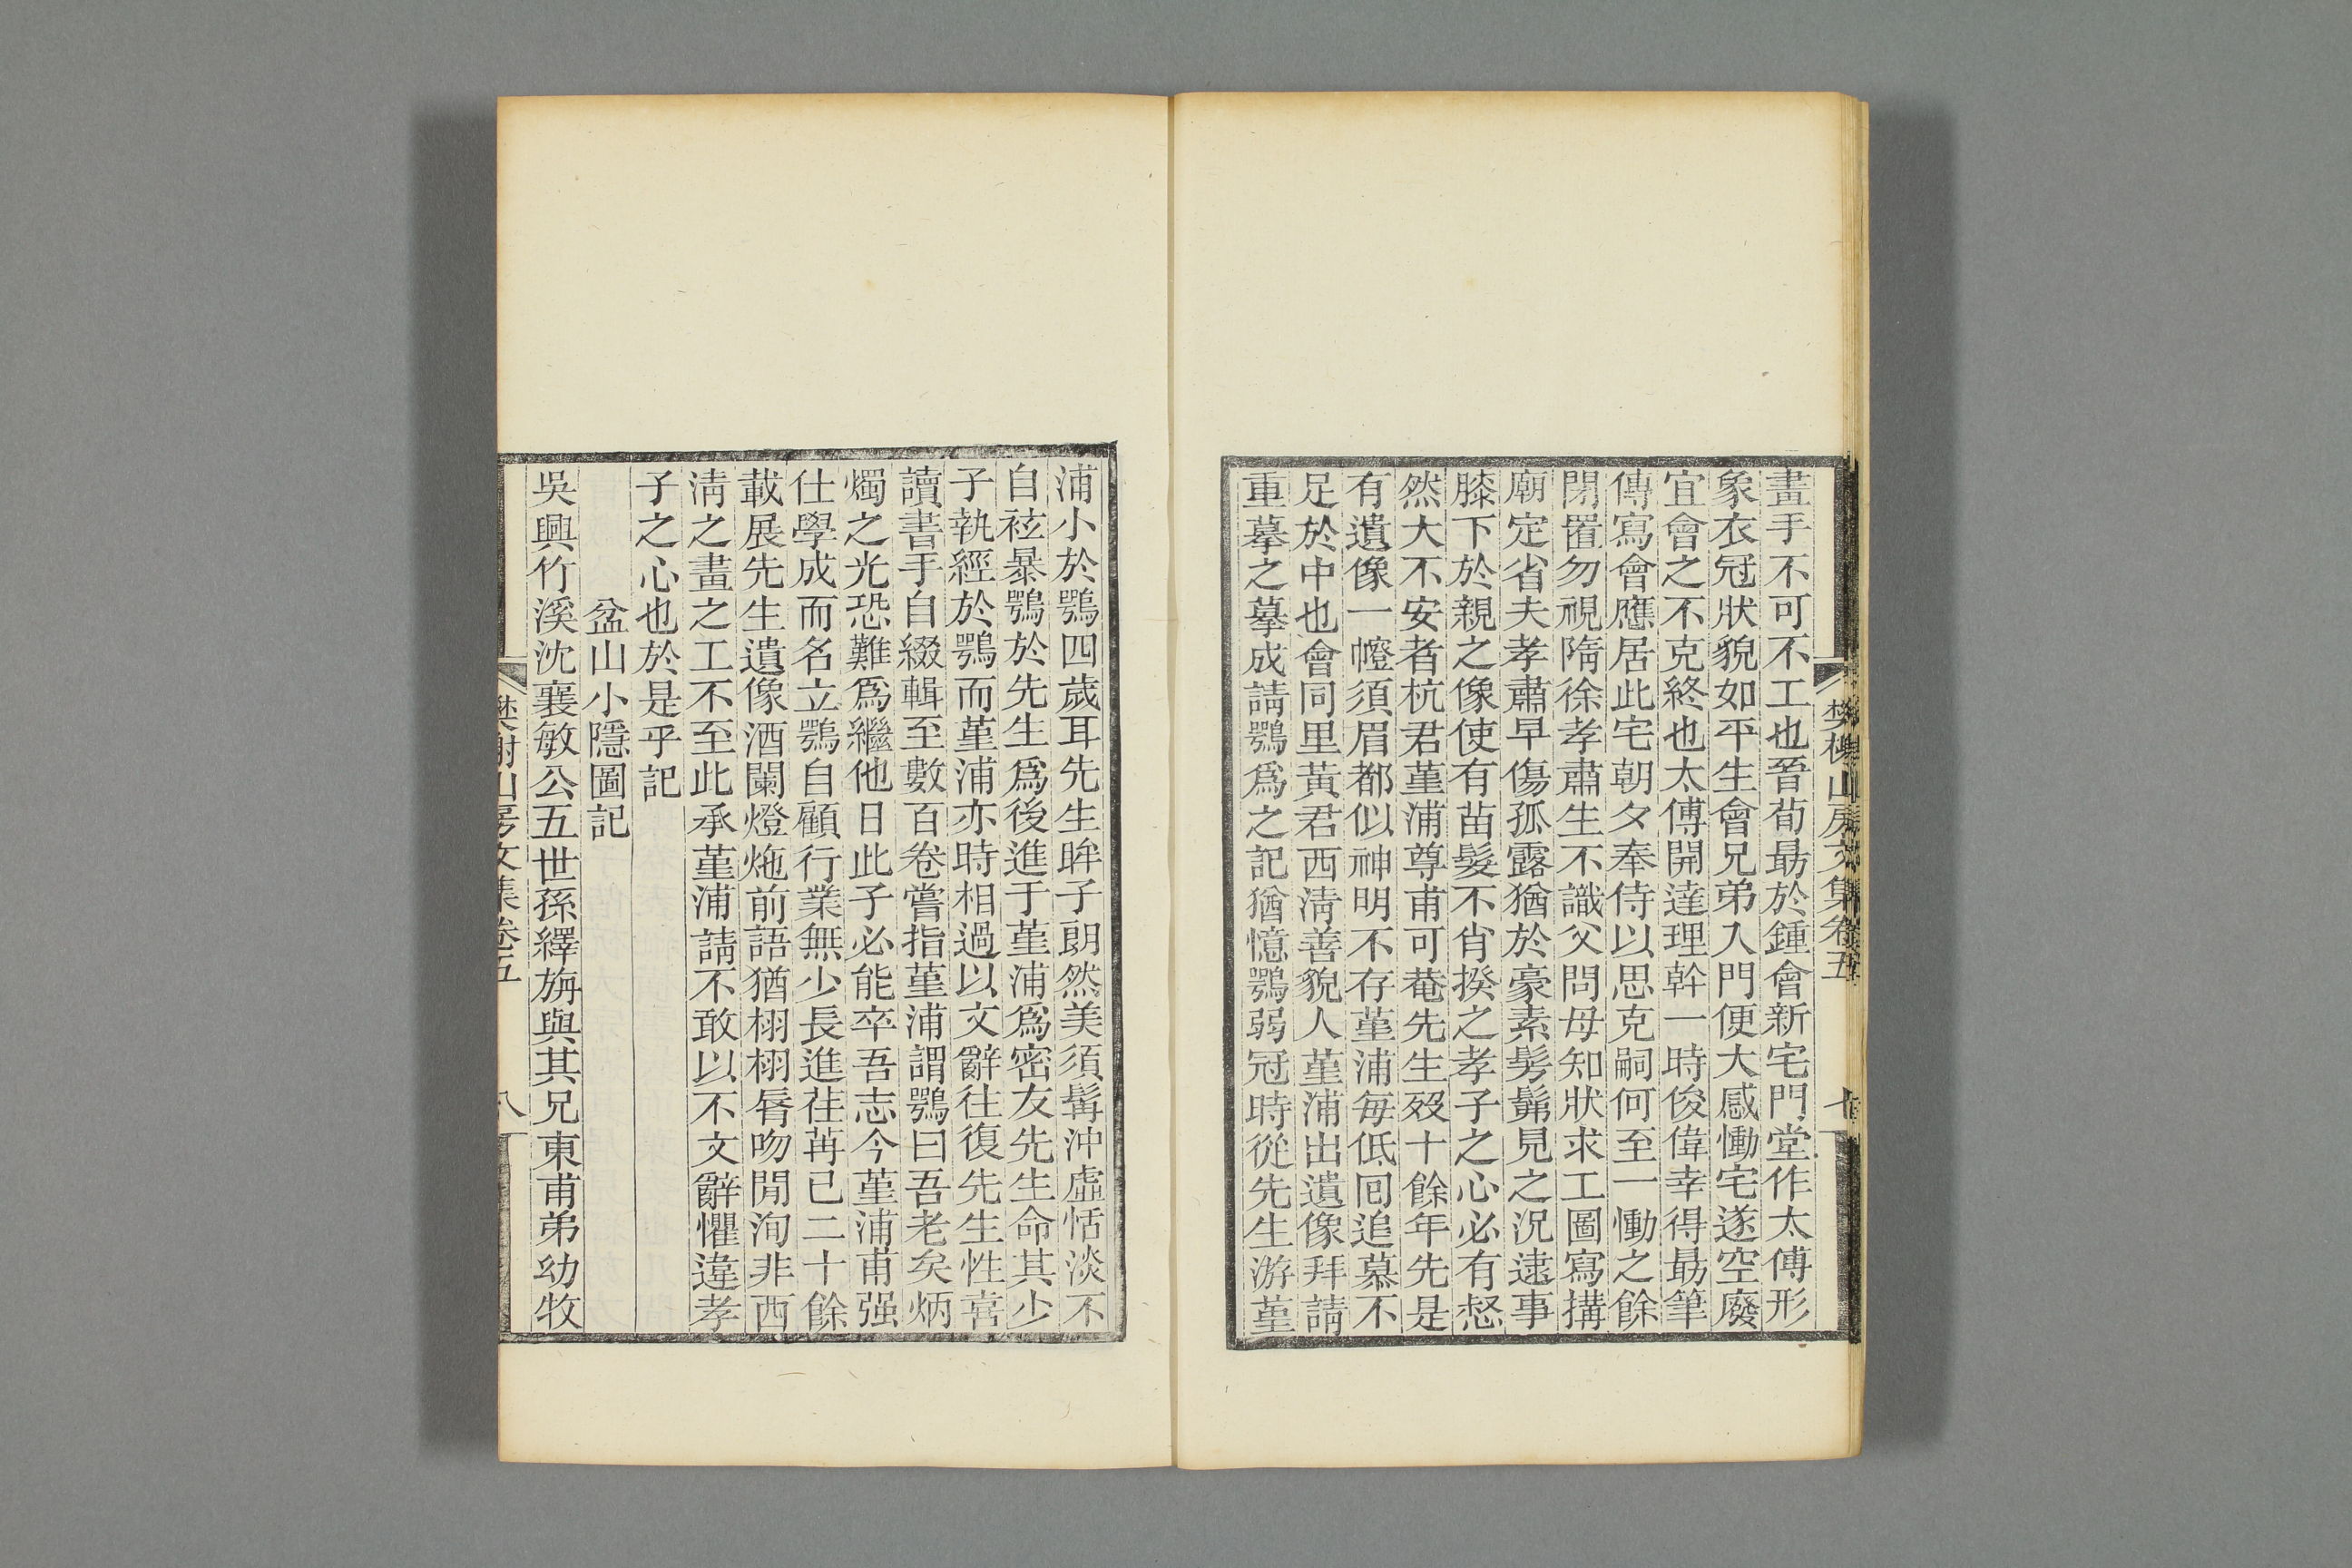 畫手不可不工也晉荀勗於鍾會新宅門堂作太傅形
象衣冠狀貌如平生會兄弟入門便大感慟宅遂空廢
宜會之不克終也太傅開達理幹一時俊偉幸得勗筆
傳寫會應居此宅朝夕奉侍以思克嗣何至一慟之餘
閉置勿視隋徐孝肅生不識父問母知狀求工圖寫搆
廟定省夫孝肅早傷孤露猶於豪素髣髴見之況逮事
膝下於親之像使有苗髮不肖揆之孝子之心必有惄
然大不安者杭君堇浦尊甫可菴先生歿十餘年先是
有遺像一幀須眉都似神明不存堇浦每低回追慕不
足於中也會同里黃君西淸善貌人堇浦出遺像拜請
重摹之摹成請鶚爲之記猶憶鶚弱冠時從先生游堇
樊榭山房文集卷五
七
浦小於鶚四歲耳先生眸子朗然美須髯沖虛恬淡不
自衒暴鶚於先生爲後進于堇浦爲密友先生命其少
子執經於鶚而堇浦亦時相過以文辭往復先生性喜
讀書手自綴輯至數百卷嘗指堇浦謂鶚曰吾老矣炳
燭之光恐難爲繼他日此子必能卒吾志今堇浦甫强
仕學成而名立鶚自顧行業無少長進荏苒已二十餘
載展先生遺像酒闌燈灺前語猶栩栩脣吻閒洵非西
淸之畫之工不至此承堇浦請不敢以不文辭懼違孝
子之心也於是乎記
盆山小隱圖記
吳興竹溪沈襄敏公五世孫繹旃與其兄東甫弟幼牧
樊榭山房文集卷五
八